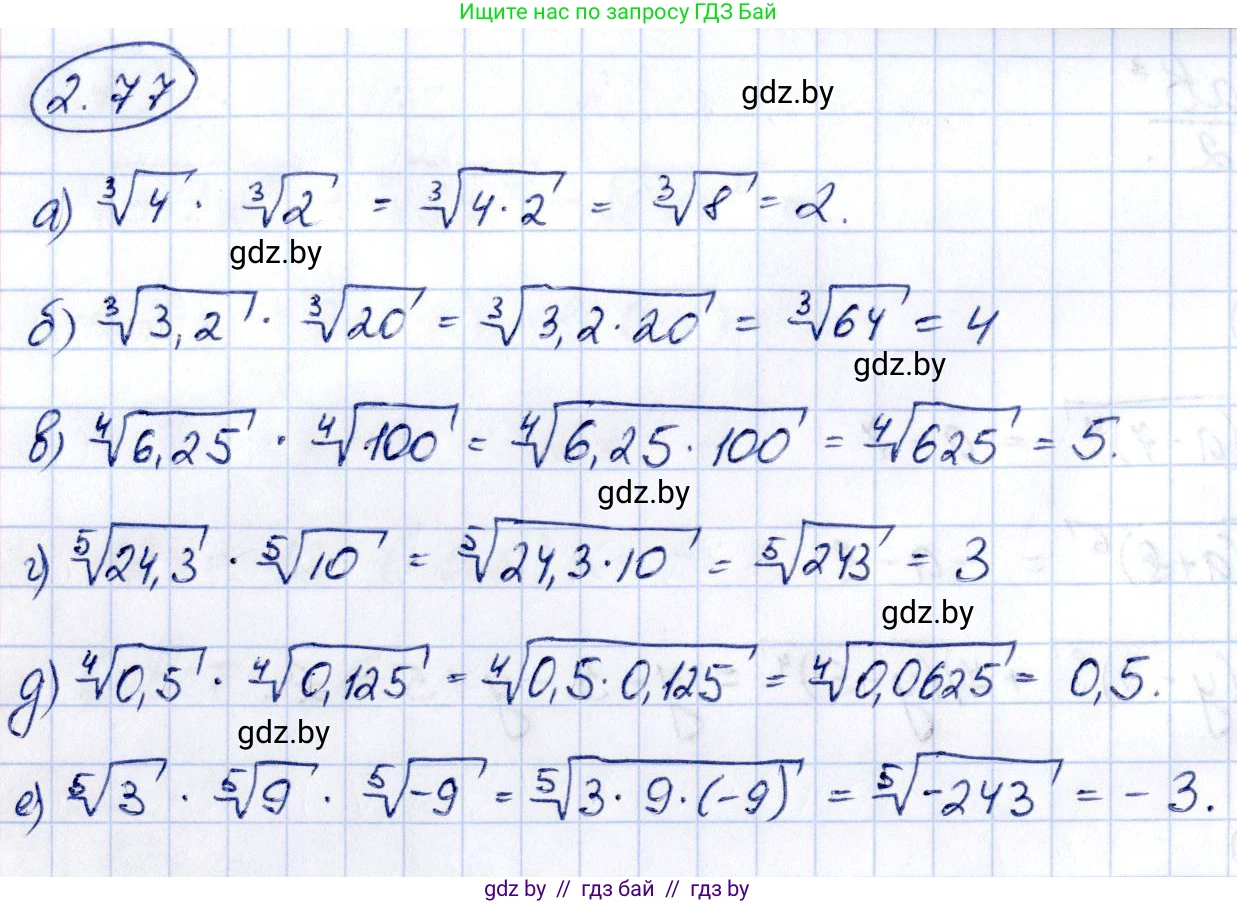 Ищите нас по запросу ГДЗ Бай
2.77
gdz.by
а) ∛4 · ∛2 = ∛(4·2) = ∛8 = 2.
gdz.by
б) ∛3,2 · ∛20 = ∛(3,2·20) = ∛64 = 4
gdz.by
в) ∜6,25 · ∜100 = ∜(6,25·100) = ∜625 = 5.
gdz.by
г) ⁵√24,3 · ⁵√10 = ⁵√(24,3·10) = ⁵√243 = 3
gdz.by
д) ∜0,5 · ∜0,125 = ∜(0,5·0,125) = ∜0,0625 = 0,5.
gdz.by
е) ⁵√3 · ⁵√9 · ⁵√-9 = ⁵√(3·9·(-9)) = ⁵√-243 = -3.
gdz by // гдз бай // гдз by